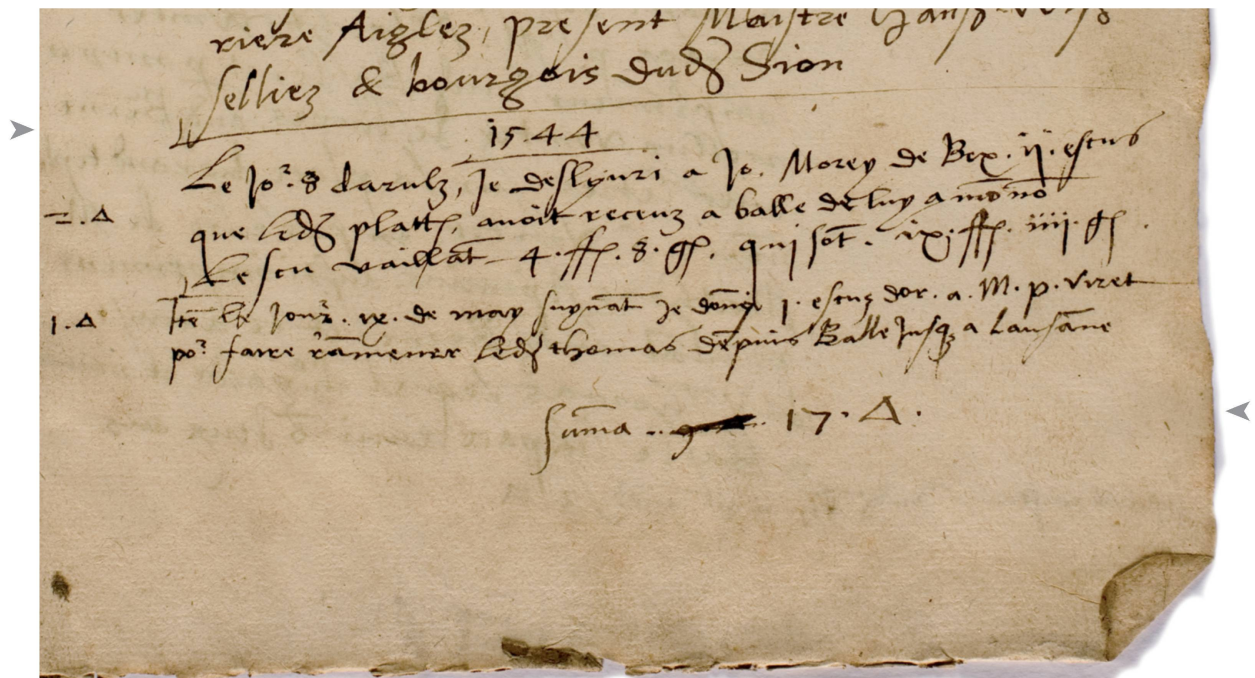 riere Aiglez, present Maistre
selliez & bourgois dud Sion
1544
Le Jor. 8 darulz, Je deslyuri a Jo. Morey de Bex. ij. escus
2. Δ
que led plattr, auoit receuz a balle de luy a mō nō
Lescu vaillāt 4. ff. 8. gr. qui sōt. ix. ff. iiij. gr.
1. Δ
Itē le Jour. ix. de may suyuāt Je donne 1. escuz dor. a. M. p. viret
por faire ramener led thomas depuis Balle Jusq a Lausāne
Sūma .. 17. Δ.